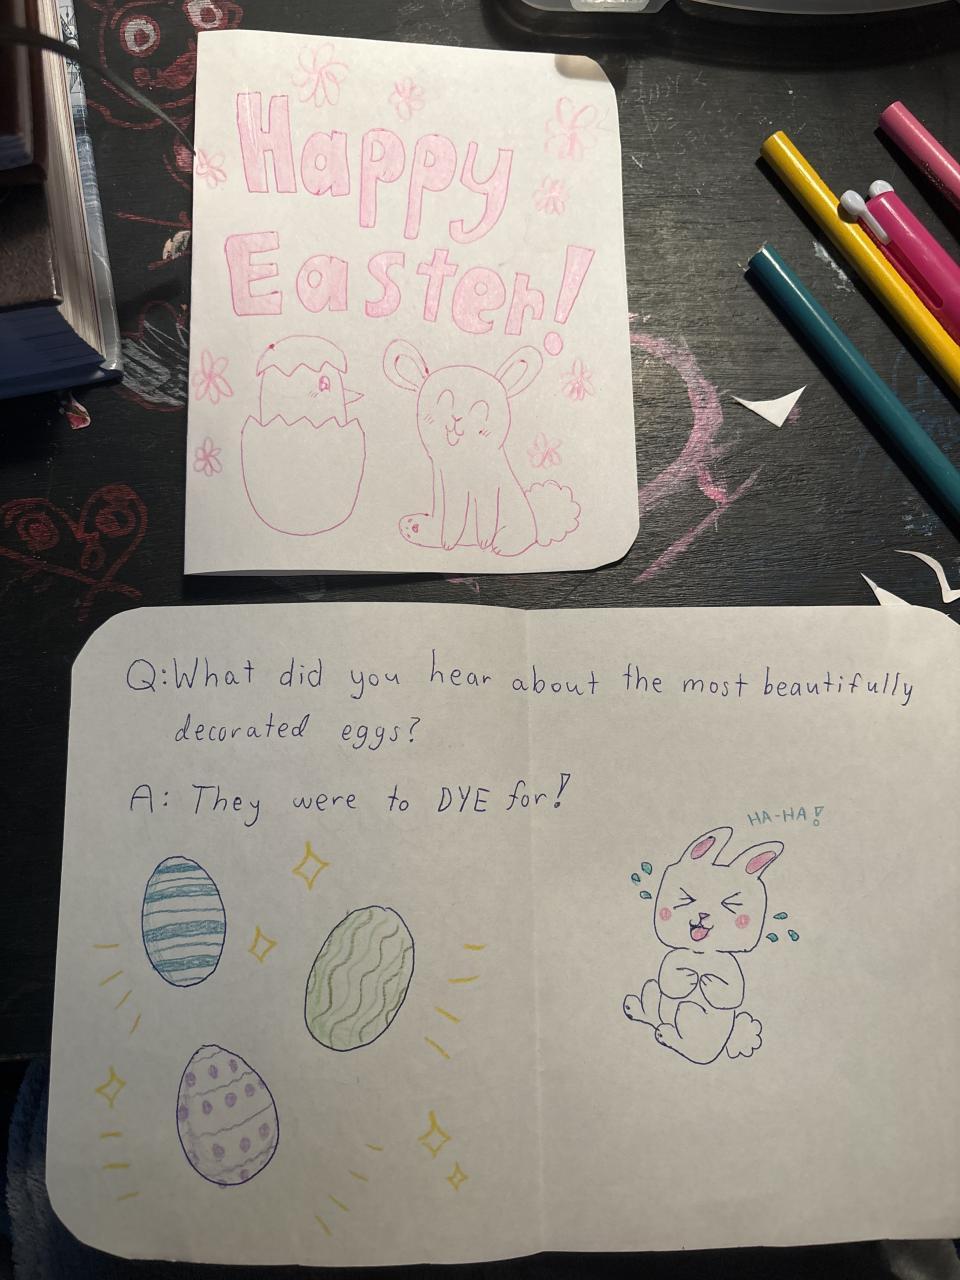 Happy
Easter!
Q: What did you hear about the most beautifully
decorated eggs?
A: They were to DYE for!
HA-HA!